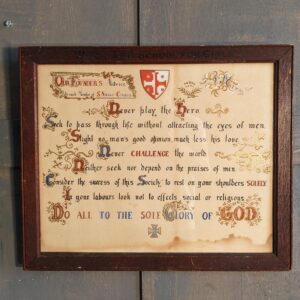 Our Founder's Advice
Never play the Hero
Seek to pass through life without attracting the eyes of men
Slight no man's good opinion, much less his love
Never CHALLENGE the world
Neither seek nor depend on the praises of men
Consider the success of this Society to rest on your shoulders SOLELY
your labours look not to effects social or religious
DO ALL TO THE SOLE GLORY OF GOD